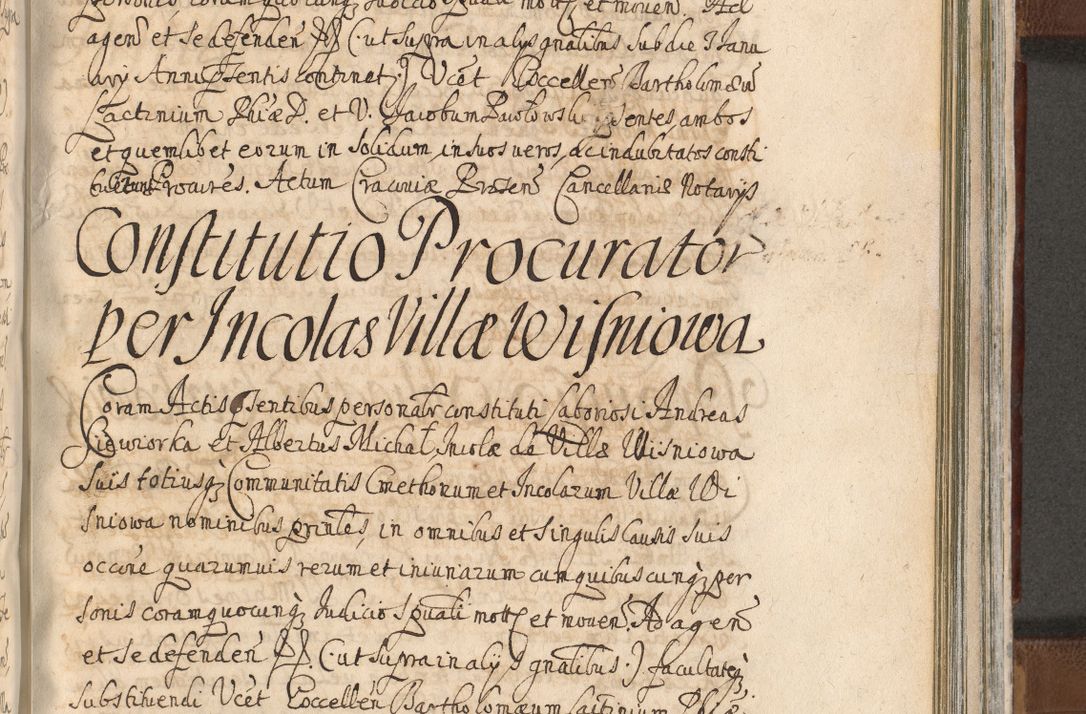 personis coram quocunq Iudicio Spuali mott et moven. Ad
agen et se defenden PP (: ut supra in alys gnalibus sub die 3 Ianu
ary Anni psentis continet :) Ucet Excellen Bartholomæu
Lactinium Phiæ D. et V. Iacobum Pawlowski psentes ambos
et quemlibet eorum in solidum, in suos veros, ac indubitatos consti
Procures. Actum Cracoviæ Præsen Cancellariæ Notarys
Constitutio Procurator
per Incolas Villæ Wisniowa
Coram Actis psentibus personalr constituti laboriosi Andreas
et Albertus Michał, Incolæ de Villæ Wisniowa
suis totiusq Communitatis Cmethonum et Incolarum Villæ Wi
sniowa nominibus printes, in omnibus et singulis causis suis
occõne quarumvis rerum et iniuriarum cum quibuscunq per
sonis coram quocunq Iudicio Spuali mott et moven. Ad agen
et se defenden PP. (: ut supra in alys gnalibus :) facultateq
substituendi Ucet Excellen Bartholomæum Lactinium Phiæ